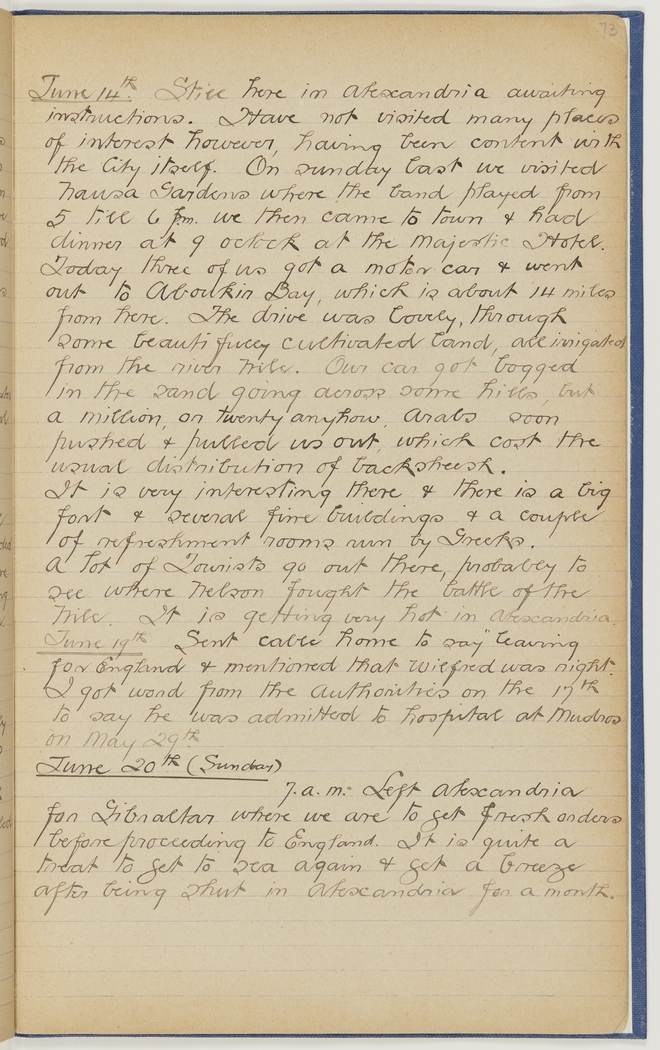 73
June 14th. Still here in Alexandria awaiting
instructions. Have not visited many places
of interest however, having been content with
the City itself. On sunday last we visited
Nausa Gardens where the band played from
5 till 6 p.m. we then came to town & had
dinner at 9 oclock at the Majestic Hotel.
Today three of us got a motor car & went
out to Aboukir Bay, which is about 14 miles
from here. The drive was lovely, through
some beautifully cultivated land, all irrigated
from the river Nile. Our car got bogged
in the sand going across some hills, but
a million, or twenty anyhow, Arabs soon
pushed & pulled us out, which cost the
usual distribution of backsheesh.
It is very interesting there & there is a big
fort & several fine buildings & a couple
of refreshment rooms run by Greeks.
A lot of Tourists go out there, probably to
see where Nelson fought the battle of the
Nile. It is getting very hot in Alexandria.
June 19th Sent cable home to say "leaving
for England & mentioned that Wilfred was right.
I got word from the Authorities on the 17th
to say he was admitted to hospital at Mudros
on May 29th.
June 20th (Sunday)
7.a.m. Left Alexandria
for Gibraltar where we are to get fresh orders
before proceeding to England. It is quite a
treat to get to sea again & get a breeze
after being shut in Alexandria for a month.